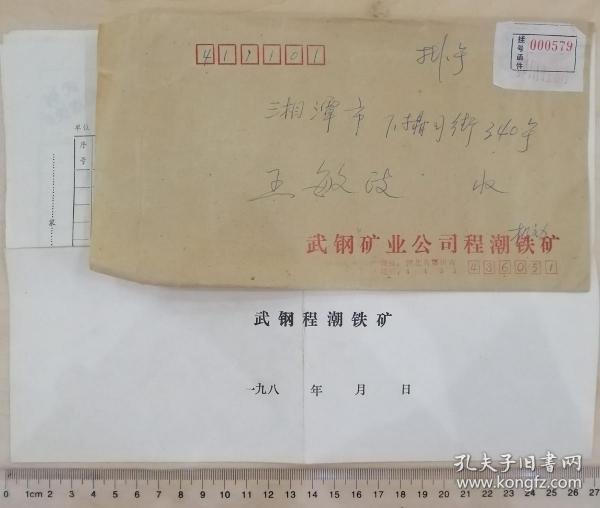 419101
挂号函件 000579
湘潭市下摄司街340号
王敏政 收
武钢矿业公司程潮铁矿
436051
单位
序号
武钢程潮铁矿
一九八 年 月 日
孔夫子旧书网
www.kongfz.com
0 1cm 2 3 4 5 6 7 8 9 10 11 12 13 14 15 16 17 18 19 20 21 22 23 24 25 26 27